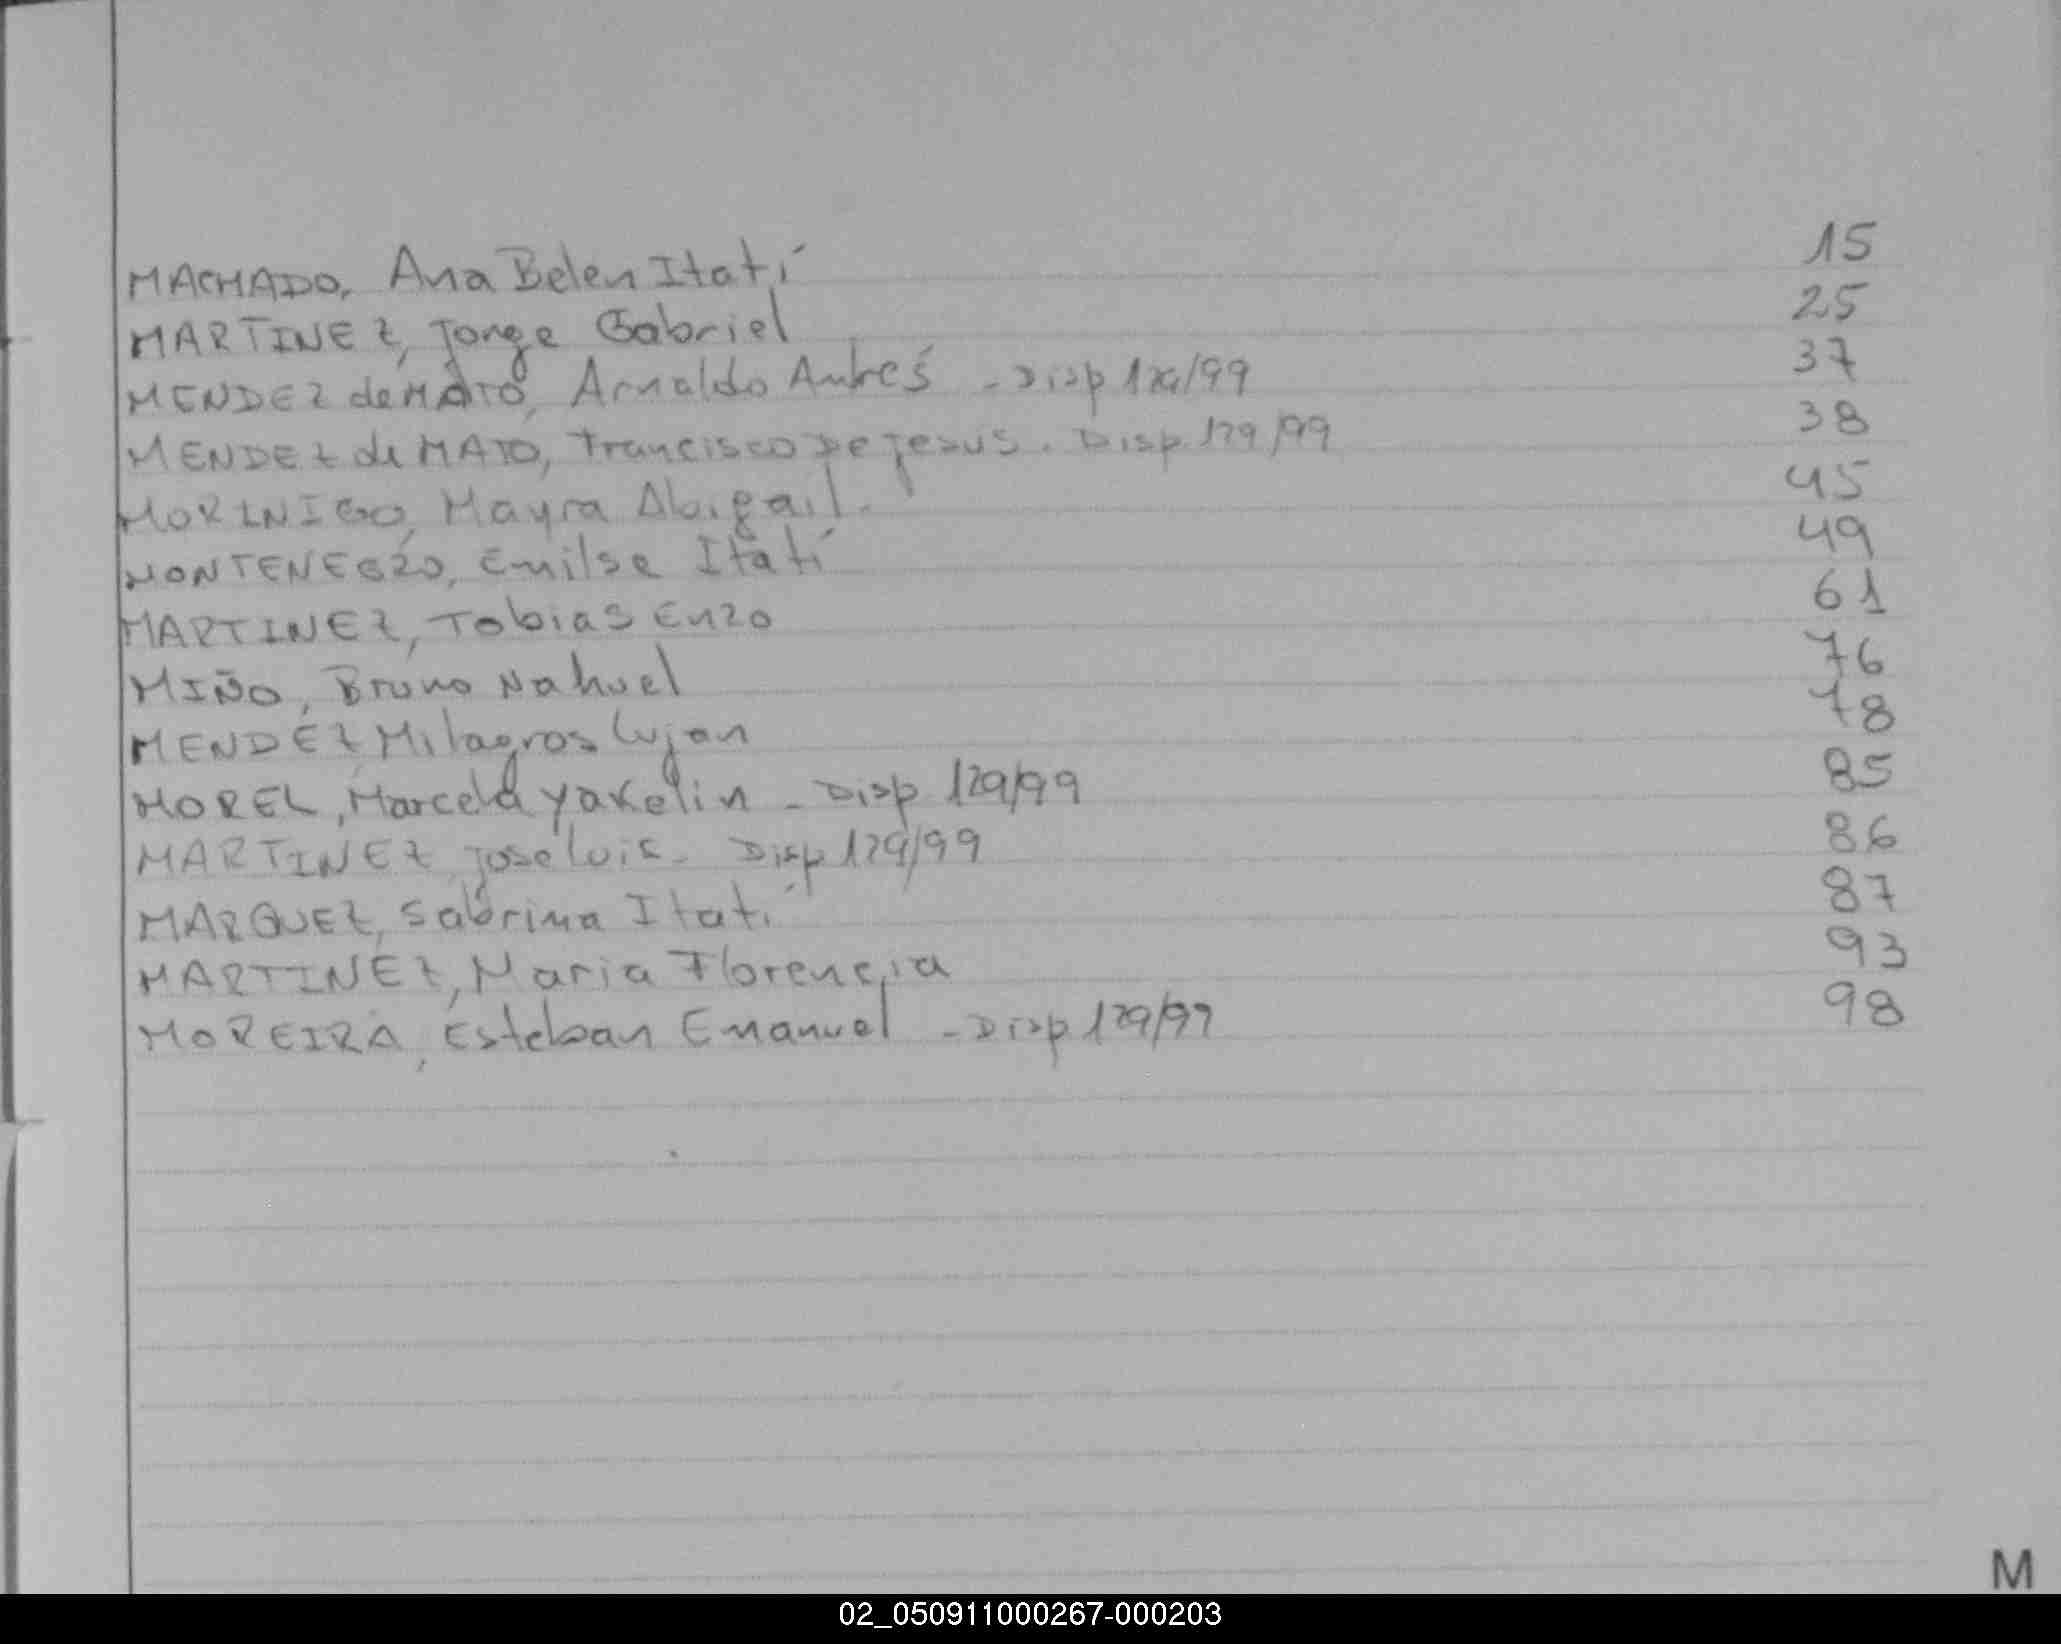 MACHADO, Ana Belen Itatí 15
MARTINEZ, Jorge Gabriel 25
MENDEZ de MATO, Arnaldo Andrés - Disp 129/99 37
MENDEZ de MATO, Francisco De Jesus. Disp. 129/99 38
MORINIGO, Mayra Abigail. 45
MONTENEGRO, Emilse Itatí 49
MARTINEZ, Tobias Enzo 61
MIÑO, Bruno Nahuel 76
MENDEZ, Milagros Lujan 78
MOREL, Marcela Yakelin - Disp 129/99 85
MARTINEZ, Jose Luis - Disp 129/99 86
MARQUEZ, Sabrina Itatí 87
MARTINEZ, Maria Florencia 93
MOREIRA, Esteban Emanuel - Disp 129/99 98
M
02_050911000267-000203